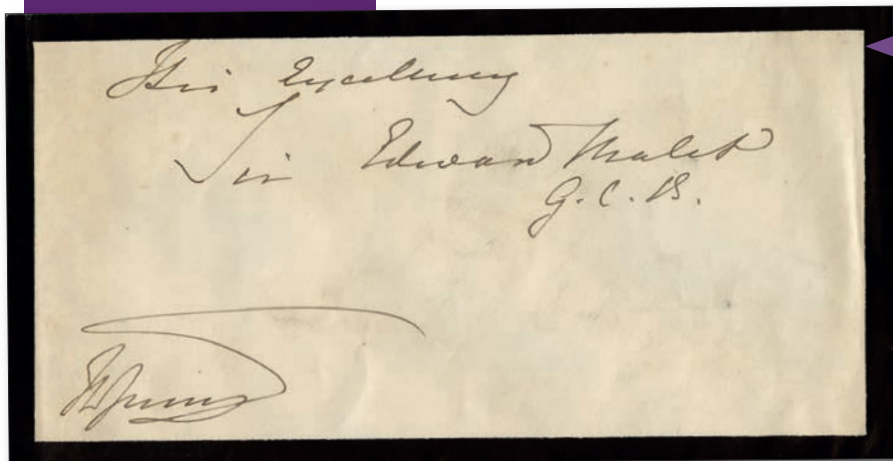 His Excellency
Sir Edward Malet
G. C. B.